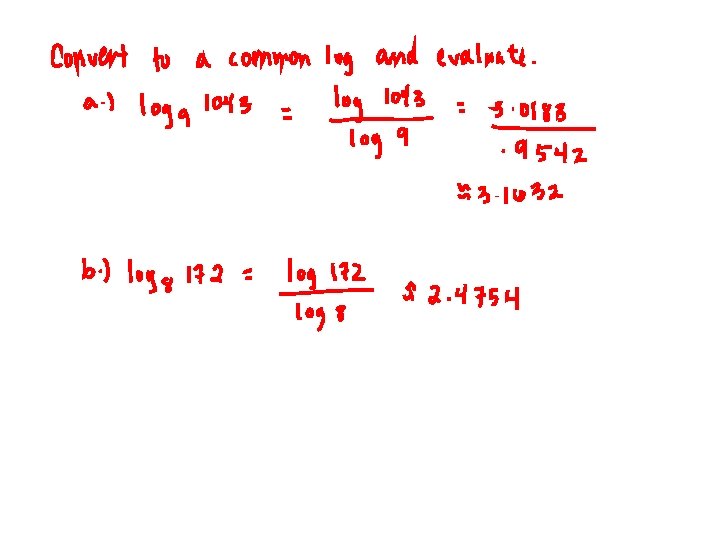 Convert to a common log and evaluate.
a.) log₉ 1043 = log 1043 / log 9 = 3.0183 / .9542
≈ 3.1632
b.) log₈ 172 = log 172 / log 8 ≈ 2.4754